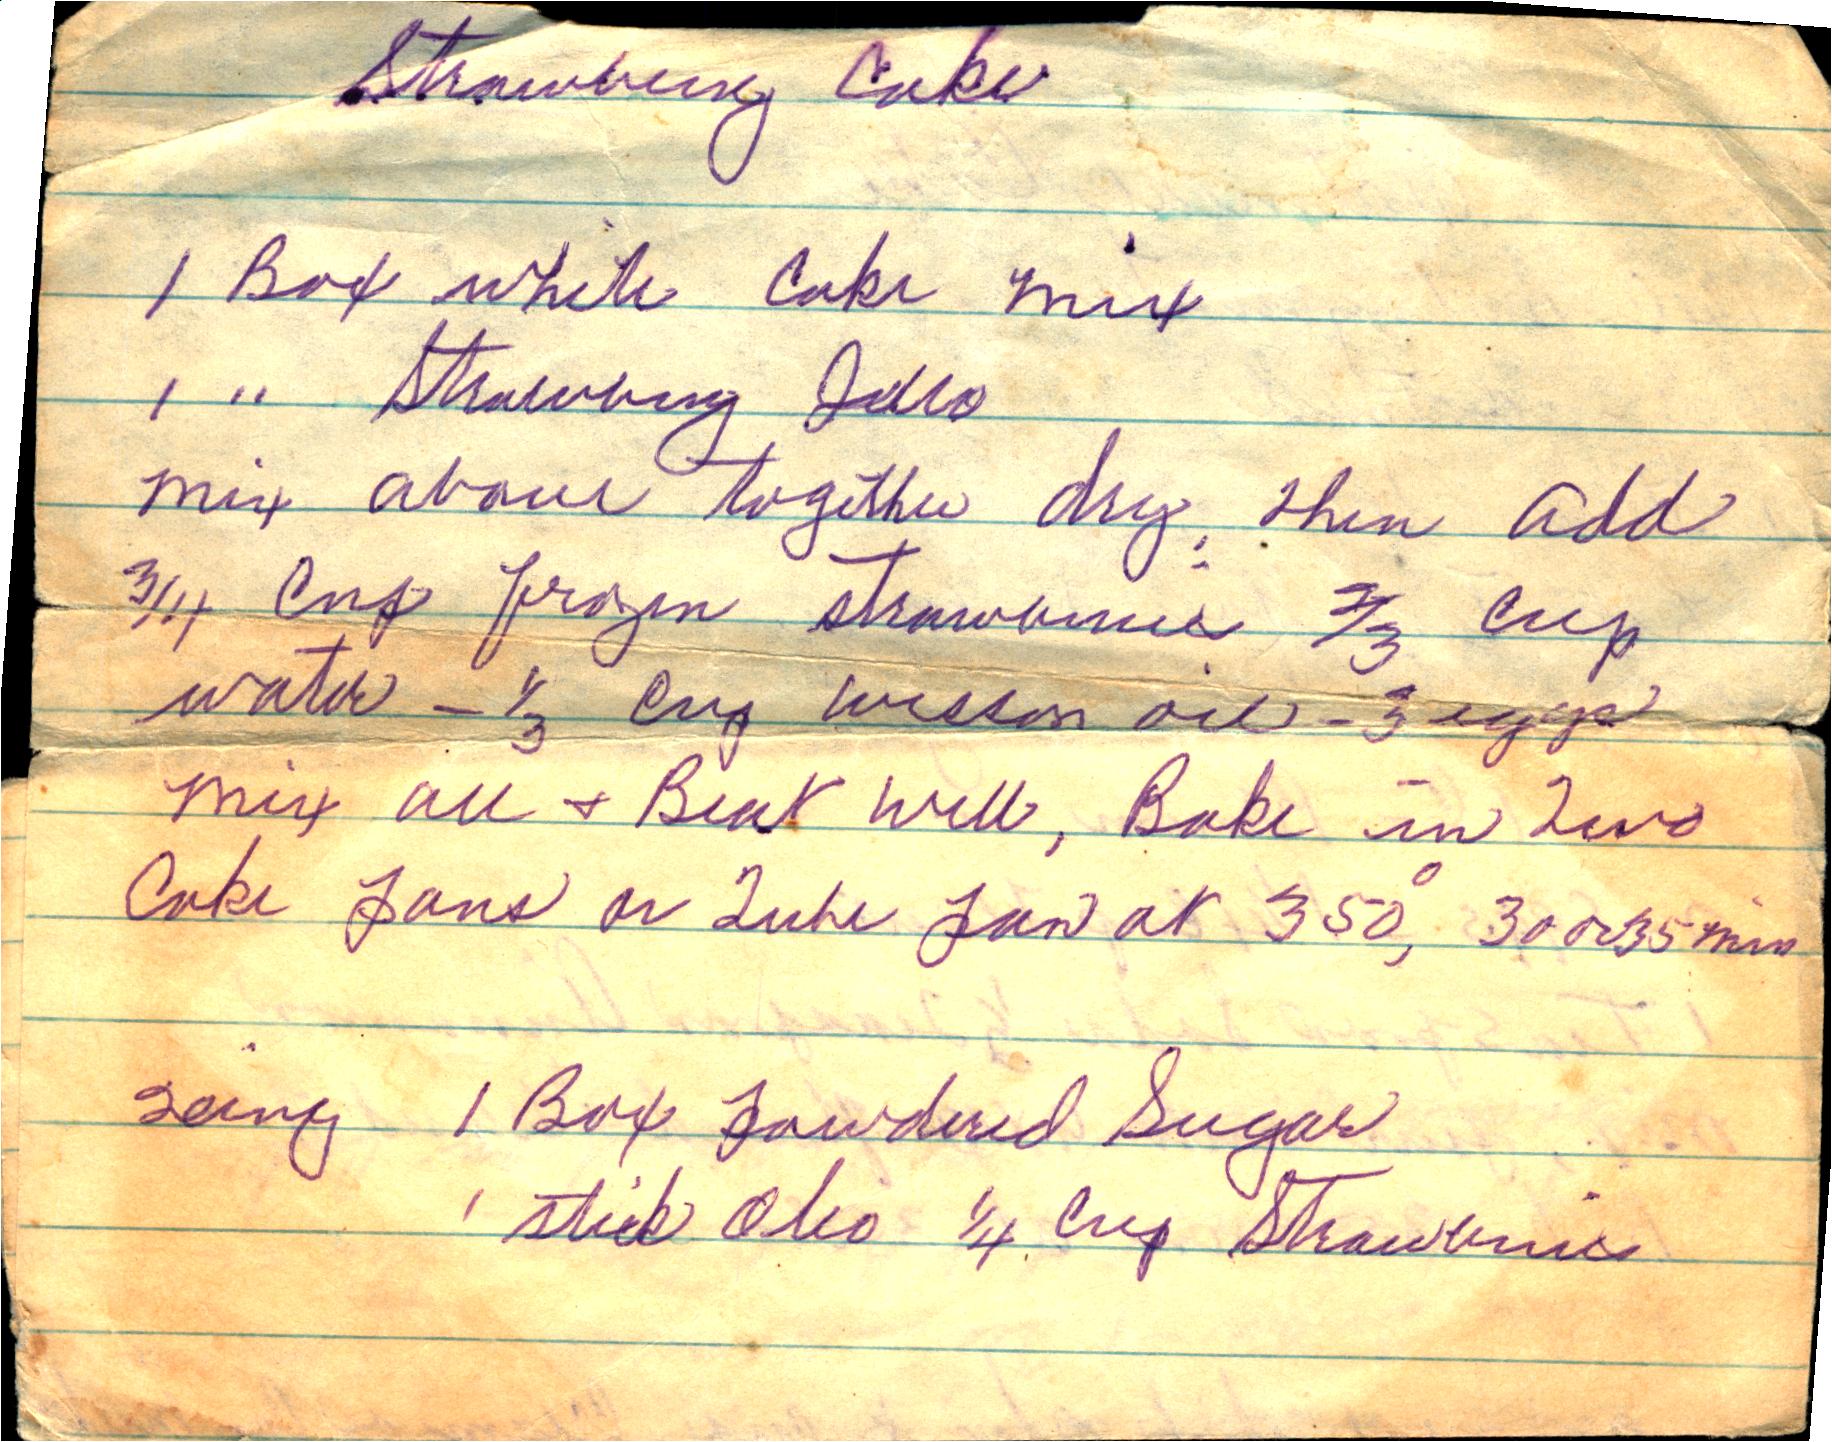 Strawberry Cake
1 Box white Cake mix
1 " Strawberry Jello
mix above together dry, then add
3/4 Cup frozen strawberries 2/3 Cup
water - 1/3 Cup wesson oil - 3 eggs
mix all + Beat Well, Bake in Two
Cake Pans or Tube Pan at 350°, 30 or 35 min
Icing 1 Box Powdered Sugar
1 stick Oleo 1/4 Cup Strawberries